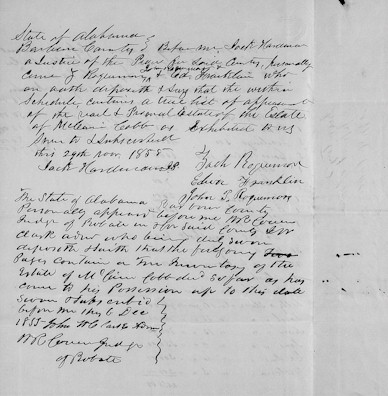 State of Alabama
Barbour County Before me Zach Hardeman
a Justice of the Peace for said County, personally
came Z Roquemore & Eden Franklin who
on oath deposeth & say that the within
Schedule contains a true list of appraisment
of the real & Personal Estate of the Estate
of McCain Cobb as Exhibited to us
Sworn to & Subscribed
this 29th Nov. 1855
Zach Roquemore
Zach Hardeman
Eden Franklin
John T. Roquemore
The State of Alabama Barbour County
Personally appeared before me W R Cowan
Judge of Probate in & for said County
Clark who being duly sworn
deposeth & saith that the foregoing
Pages Contain a True Inventory of the
Estate of McCain Cobb decd so far as has
come to his Possession up to this date
Sworn & Subscribed
before me this 6 Dec
1855 John W Clark
W R Cowan Judge
of Probate